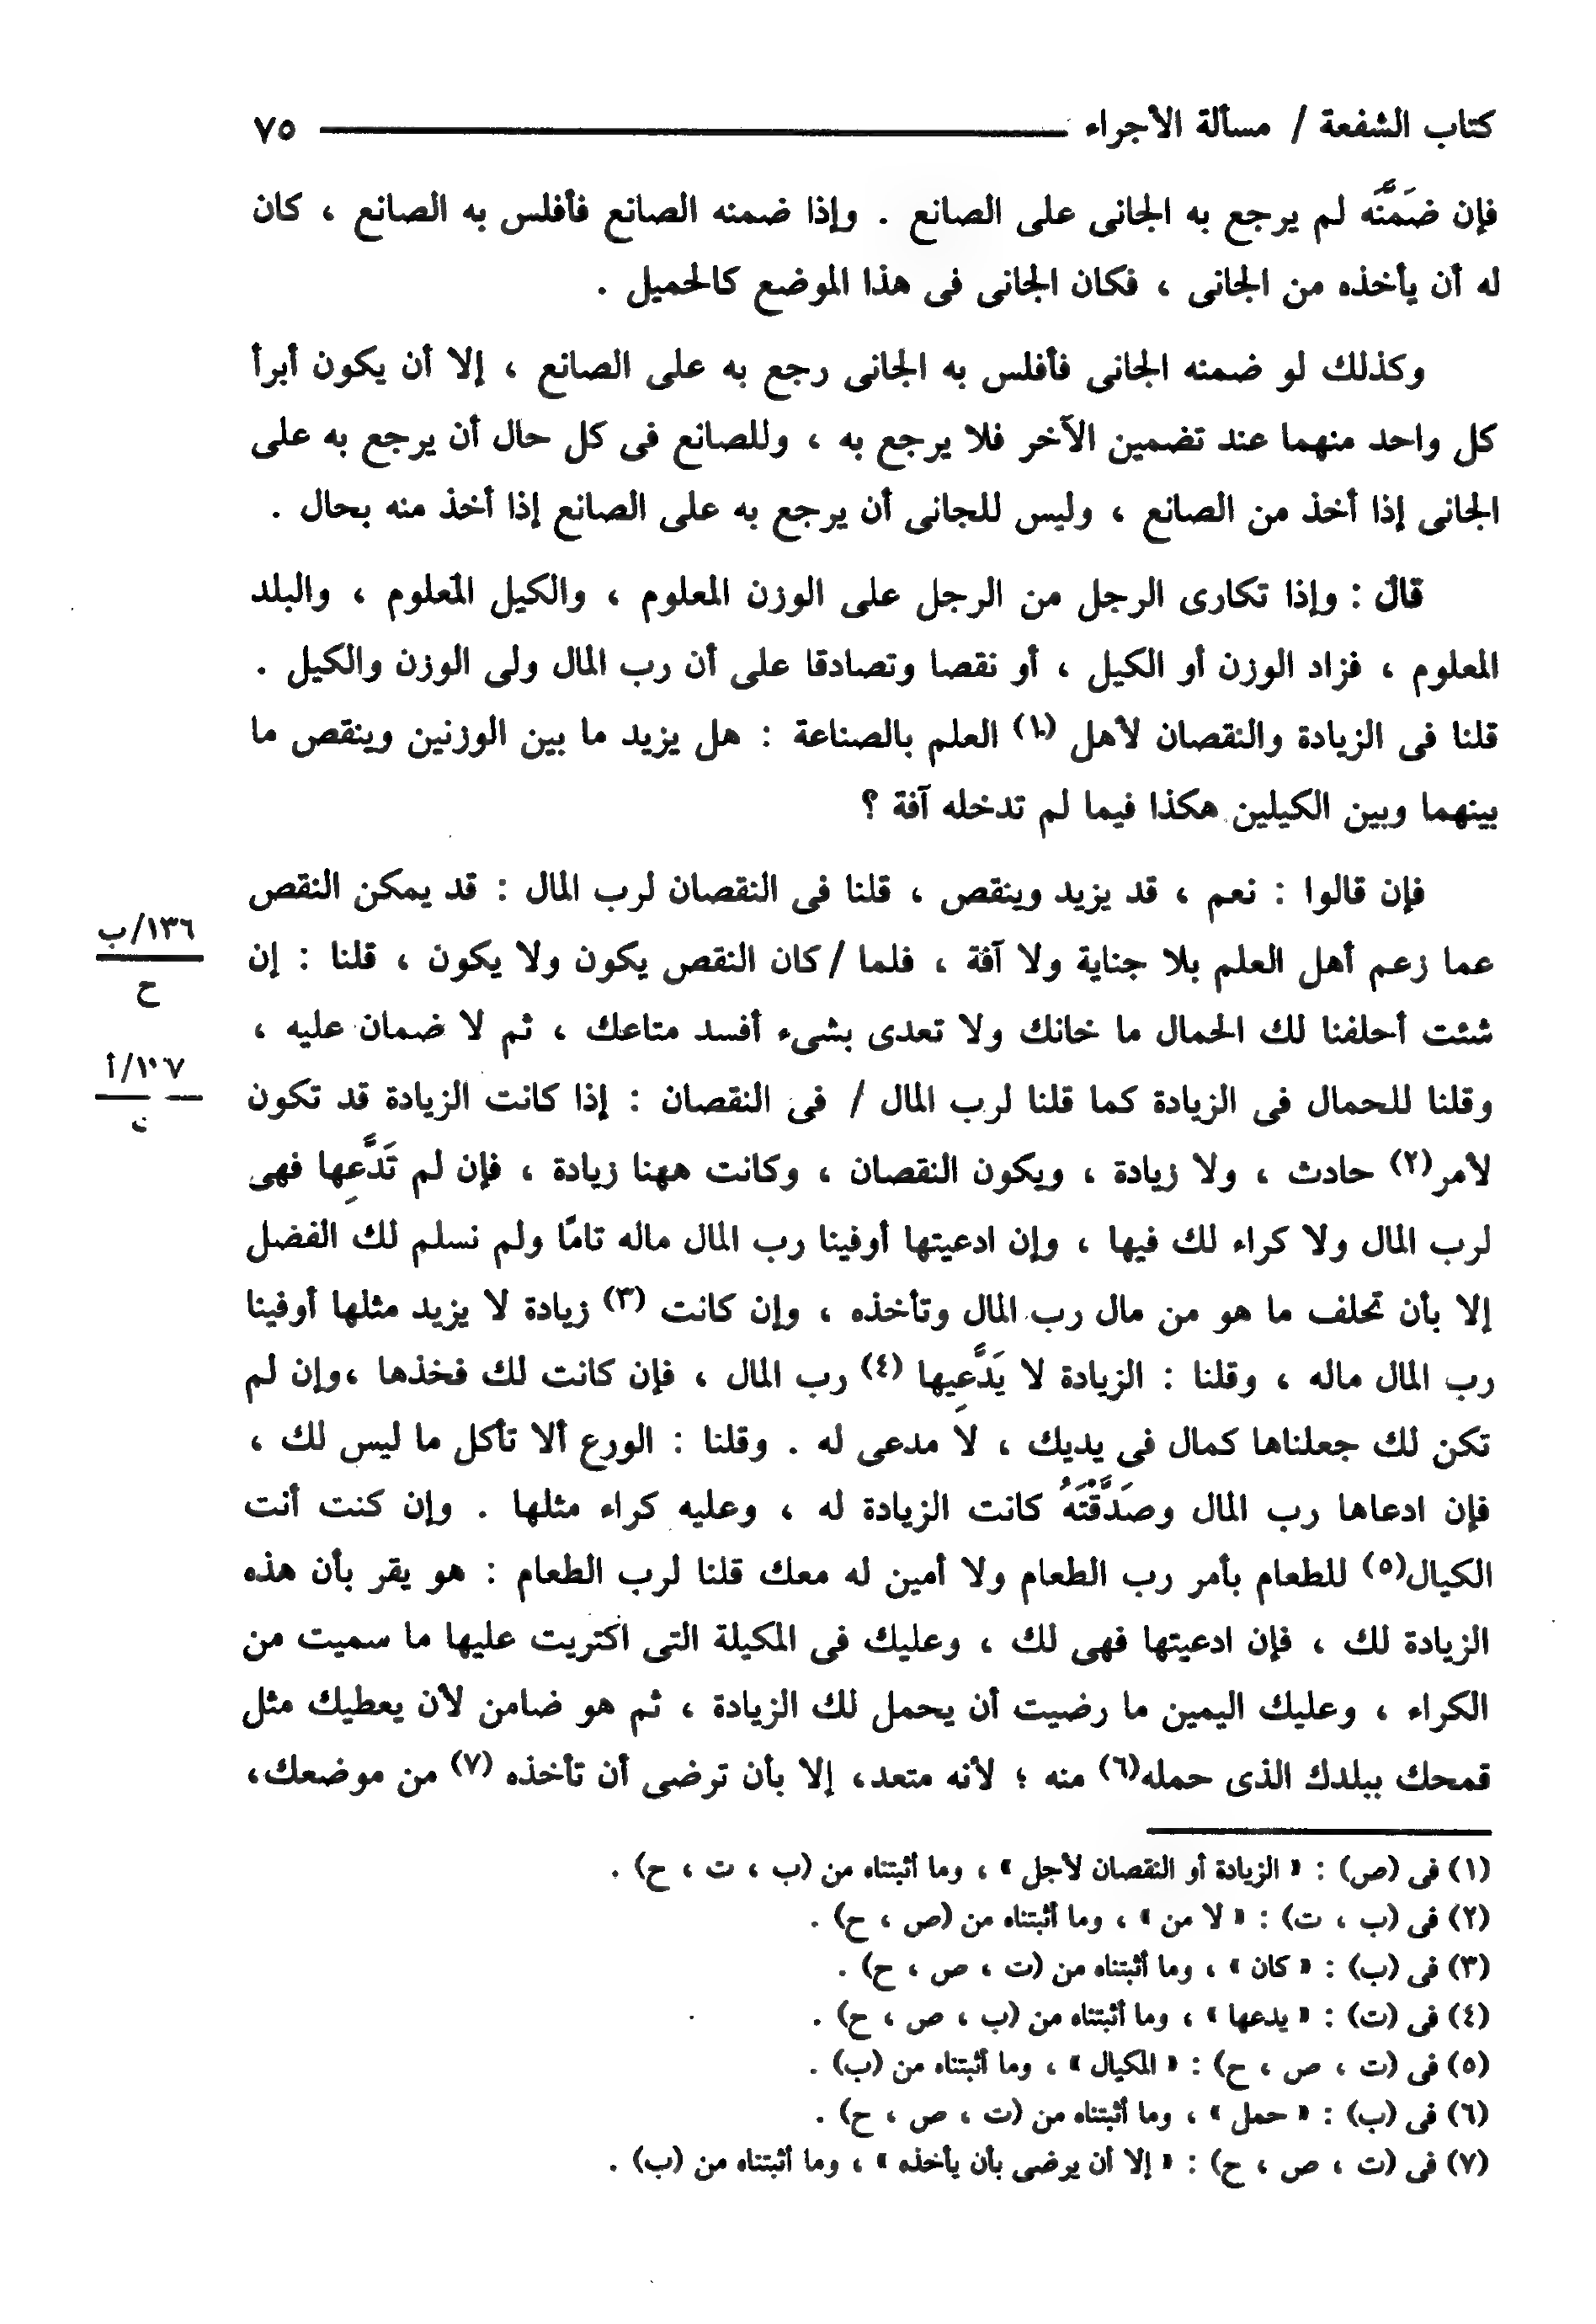 كتاب الشفعة / مسألة الأجراء ٧٥
فإن ضَمنَّه لم يرجع به الجانى على الصانع . وإذا ضمنه الصانع فأفلس به الصانع ، كان
له أن يأخذه من الجانى ، فكان الجانى فى هذا الموضع كالحميل .
وكذلك لو ضمنه الجانى فأفلس به الجانى رجع به على الصانع ، إلا أن يكون أبرأ
كل واحد منهما عند تضمين الآخر فلا يرجع به ، وللصانع فى كل حال أن يرجع به على
الجانى إذا أخذ من الصانع ، وليس للجانى أن يرجع به على الصانع إذا أخذ منه بحال .
قال : وإذا تكارى الرجل من الرجل على الوزن المعلوم ، والكيل المعلوم ، والبلد
المعلوم ، فزاد الوزن أو الكيل ، أو نقصا وتصادقا على أن رب المال ولى الوزن والكيل .
قلنا فى الزيادة والنقصان لأهل (١) العلم بالصناعة : هل يزيد ما بين الوزنين وينقص ما
بينهما وبين الكيلين هكذا فيما لم تدخله آفة ؟
فإن قالوا : نعم ، قد يزيد وينقص ، قلنا فى النقصان لرب المال : قد يمكن النقص
عما زعم أهل العلم بلا جناية ولا آفة ، فلما / كان النقص يكون ولا يكون ، قلنا : إن
١٣٦/ب
ح
شئت أحلفنا لك الحمال ما خانك ولا تعدى بشىء أفسد متاعك ، ثم لا ضمان عليه ،
وقلنا للحمال فى الزيادة كما قلنا لرب المال / فى النقصان : إذا كانت الزيادة قد تكون
١٠٧/أ
ت
لأمر(٢) حادث ، ولا زيادة ، ويكون النقصان ، وكانت ههنا زيادة ، فإن لم تَدَّعِها فهى
لرب المال ولا كراء لك فيها ، وإن ادعيتها أوفينا رب المال ماله تامًا ولم نسلم لك الفضل
إلا بأن تحلف ما هو من مال رب المال وتأخذه ، وإن كانت (٣) زيادة لا يزيد مثلها أوفينا
رب المال ماله ، وقلنا : الزيادة لا يَدَّعِيها (٤) رب المال ، فإن كانت لك فخذها ،وإن لم
تكن لك جعلناها كمال فى يديك ، لا مدعى له . وقلنا : الورع ألا تأكل ما ليس لك ،
فإن ادعاها رب المال وصَدَّقْتَهُ كانت الزيادة له ، وعليه كراء مثلها . وإن كنت أنت
الكيال(٥) للطعام بأمر رب الطعام ولا أمين له معك قلنا لرب الطعام : هو يقر بأن هذه
الزيادة لك ، فإن ادعيتها فهى لك ، وعليك فى المكيلة التى اكتريت عليها ما سميت من
الكراء ، وعليك اليمين ما رضيت أن يحمل لك الزيادة ، ثم هو ضامن لأن يعطيك مثل
قمحك ببلدك الذى حمله(٦) منه ؛ لأنه متعد، إلا بأن ترضى أن تأخذه (٧) من موضعك،
(١) فى (ص) : « الزيادة أو النقصان لأجل » ، وما أثبتناه من (ب ، ت ، ح) .
(٢) فى (ب ، ت) : « لا من » ، وما أثبتناه من (ص ، ح) .
(٣) فى (ب) : « كان » ، وما أثبتناه من (ت ، ص ، ح) .
(٤) فى (ت) : « يدعها » ، وما أثبتناه من (ب ، ص ، ح) .
(٥) فى (ت ، ص ، ح) : « المكيال » ، وما أثبتناه من (ب) .
(٦) فى (ب) : « حمل » ، وما أثبتناه من (ت ، ص ، ح) .
(٧) فى (ت ، ص ، ح) : « إلا أن يرضى بأن يأخذه » ، وما أثبتناه من (ب) .